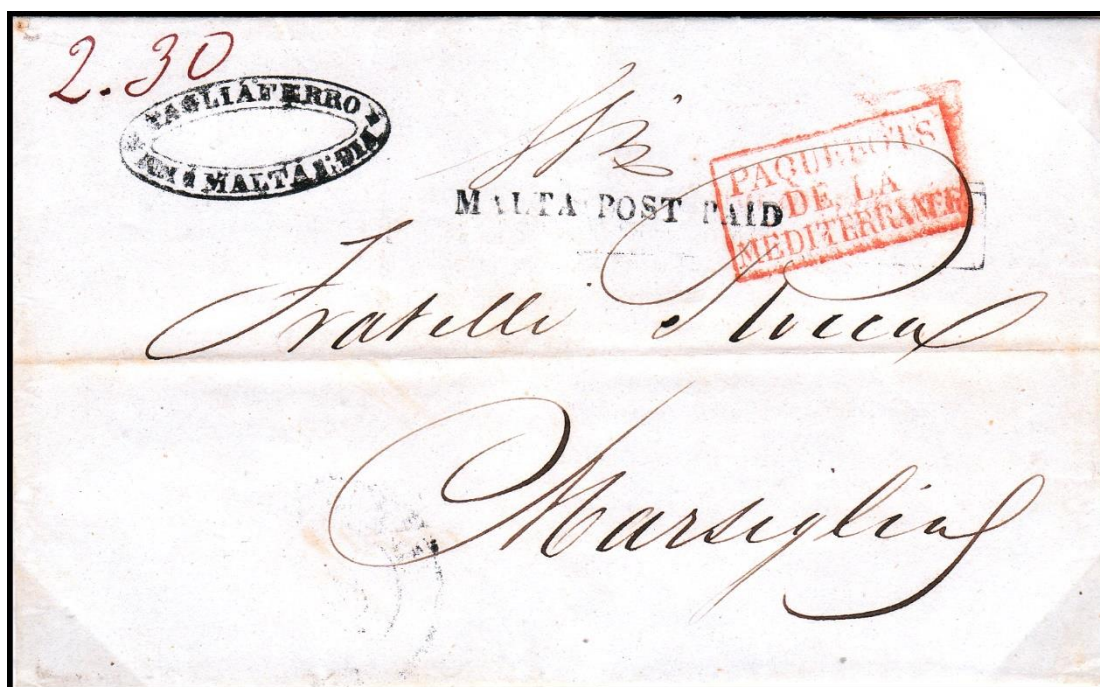 2.30
TAGLIAFERRO
MALTA
MALTA POST PAID
PAQUEBOTS
DE LA
MEDITERRANEE
Fratelli Rocca
Marsiglia